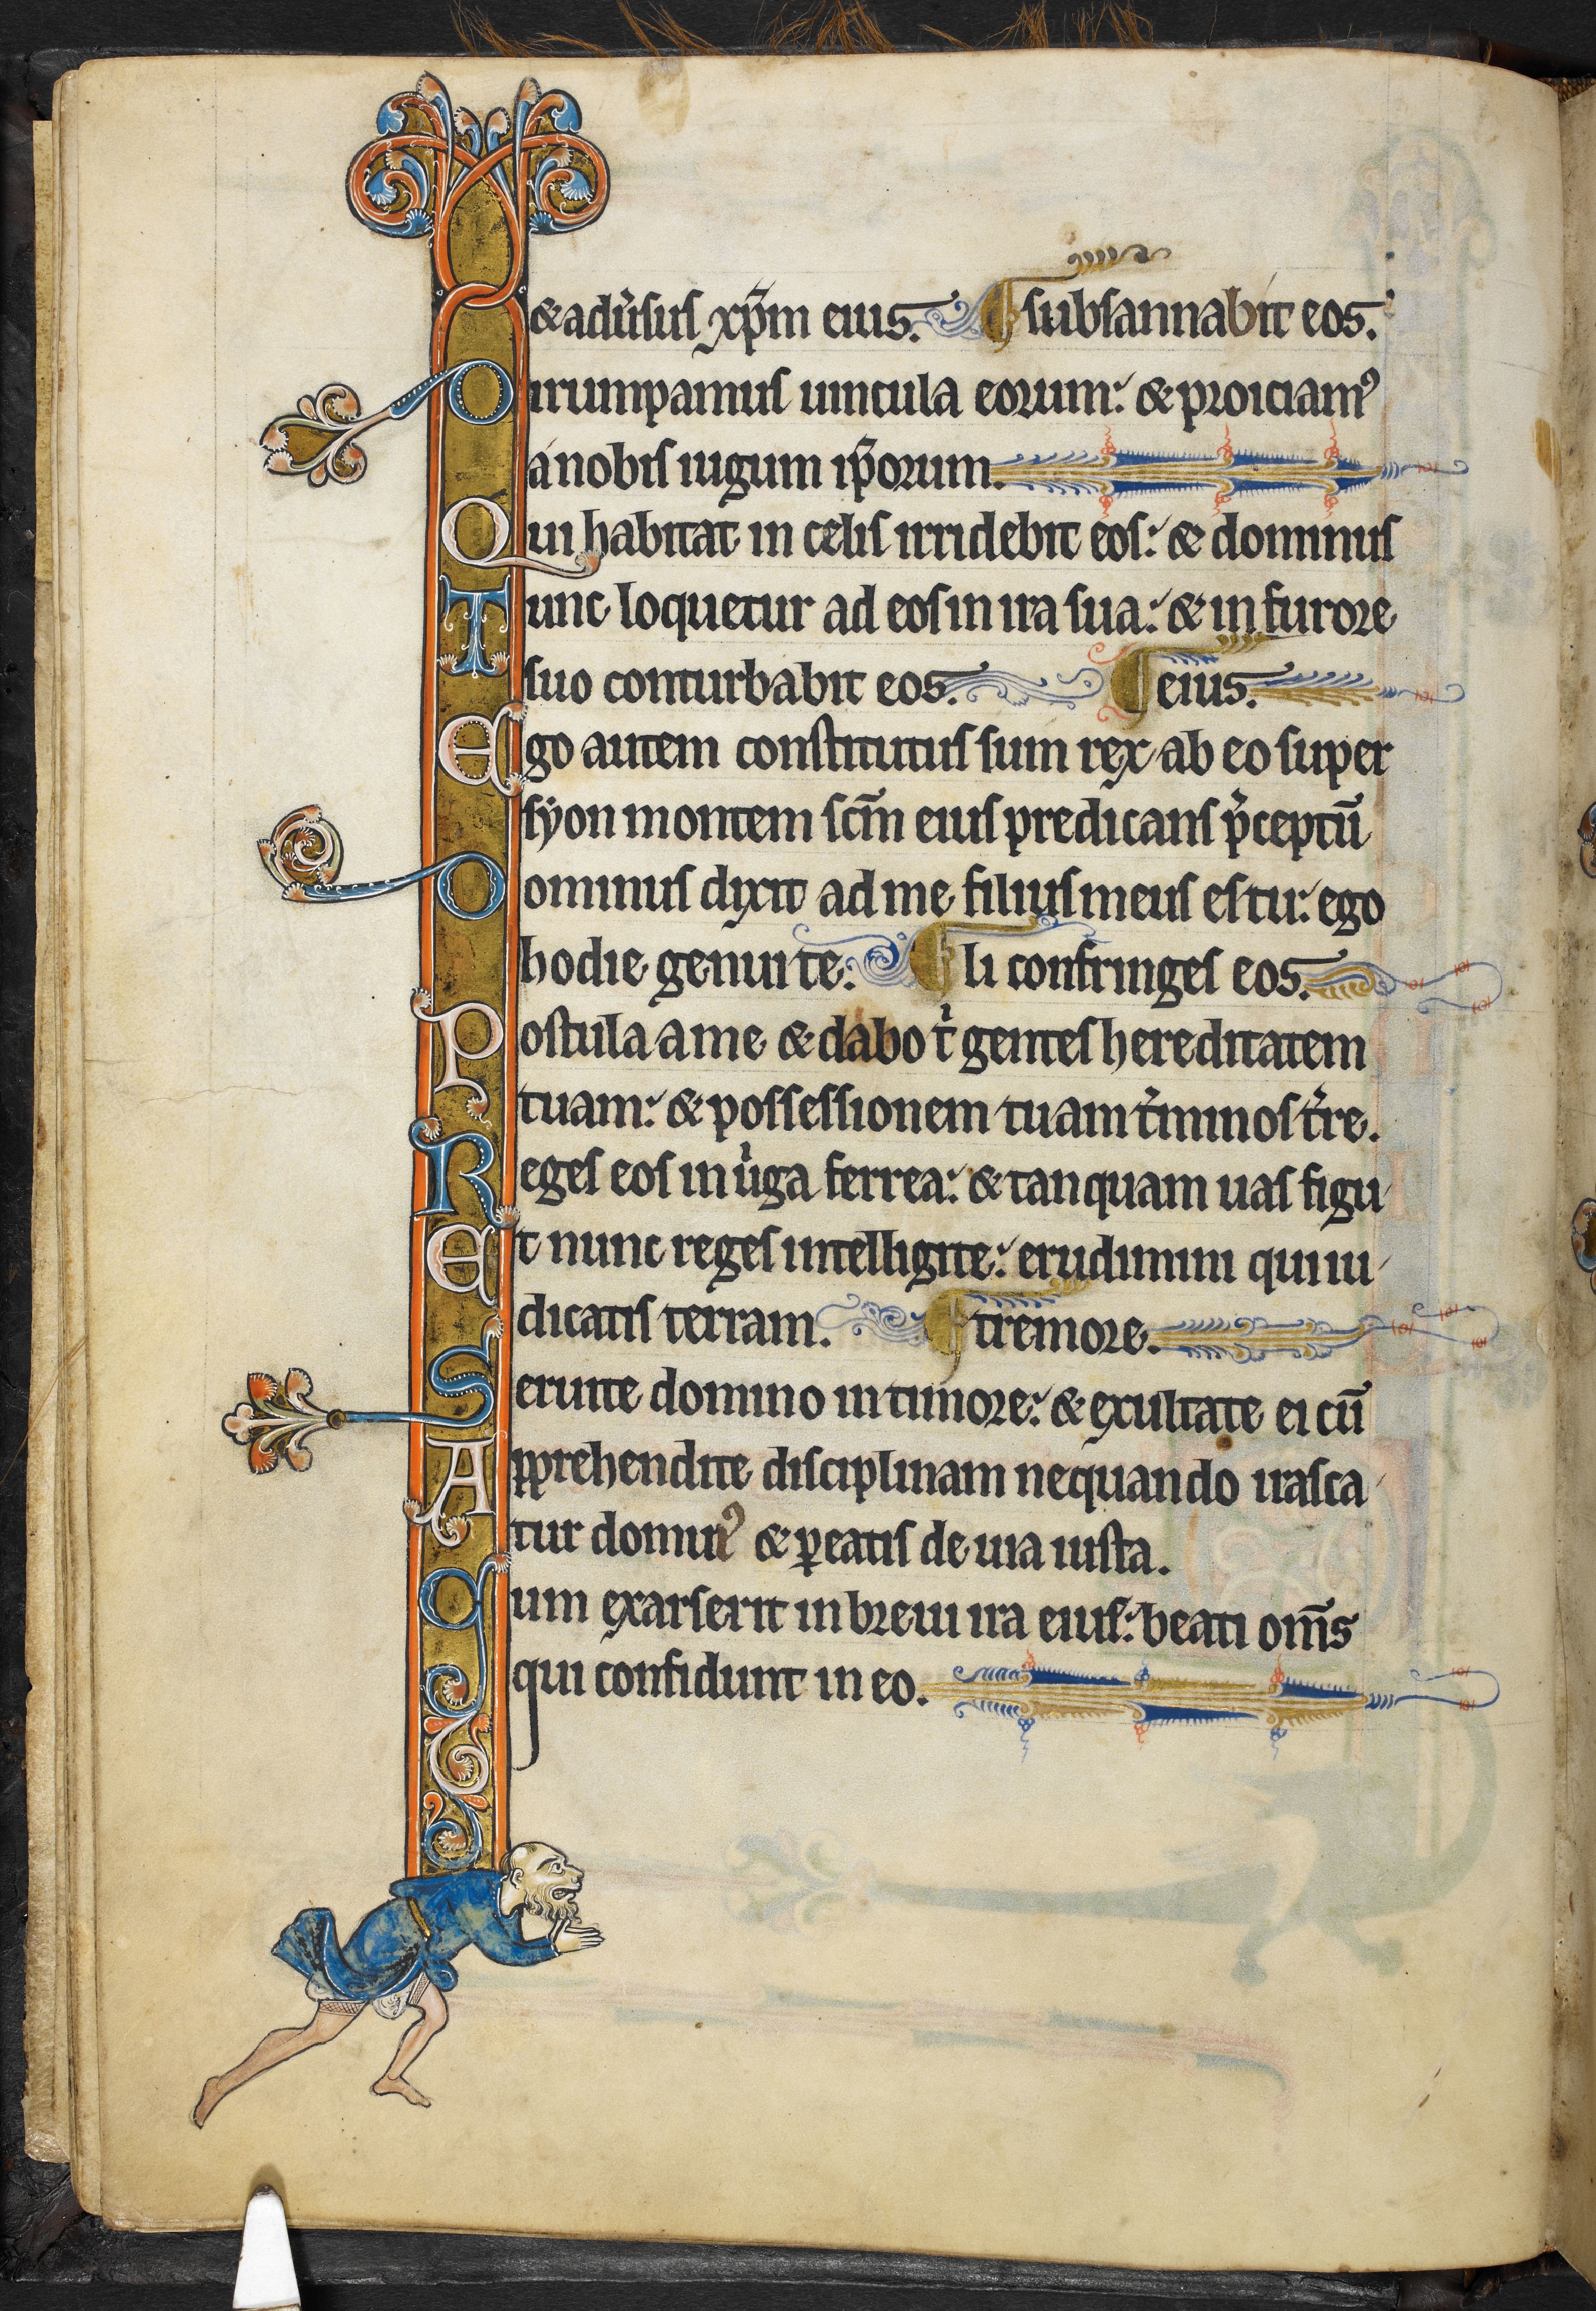 & adu̾sus xp̄m eius. subsannabit eos.
Dirumpamus uincula eorum: & proiciamꝰ
a nobis iugum ip̄orum.
Qui habitat in celis irridebit eos: & dominus
Tunc loquetur ad eos in ira sua: & in furore
suo conturbabit eos. eius.
Ego autem constitutus sum rex ab eo super
syon montem sc̄m eius predicans p̾ceptū
Dominus dixit ad me filius meus es tu: ego
hodie genui te: li confringes eos.
Postula a me & dabo t̾ gentes hereditatem
tuam: & possessionem tuam t̾minos t̾re.
Reges eos in u̾ga ferrea: & tanquam uas figu
Et nunc reges intelligite: erudimini qui iu
dicatis terram. tremore.
Seruite domino in timore: & exultate ei cū
Apprehendite disciplinam nequando irasca
tur dominꝰ & ꝑeatis de uia iusta.
Cum exarserit in breui ira eius: beati om̄s
qui confidunt in eo.